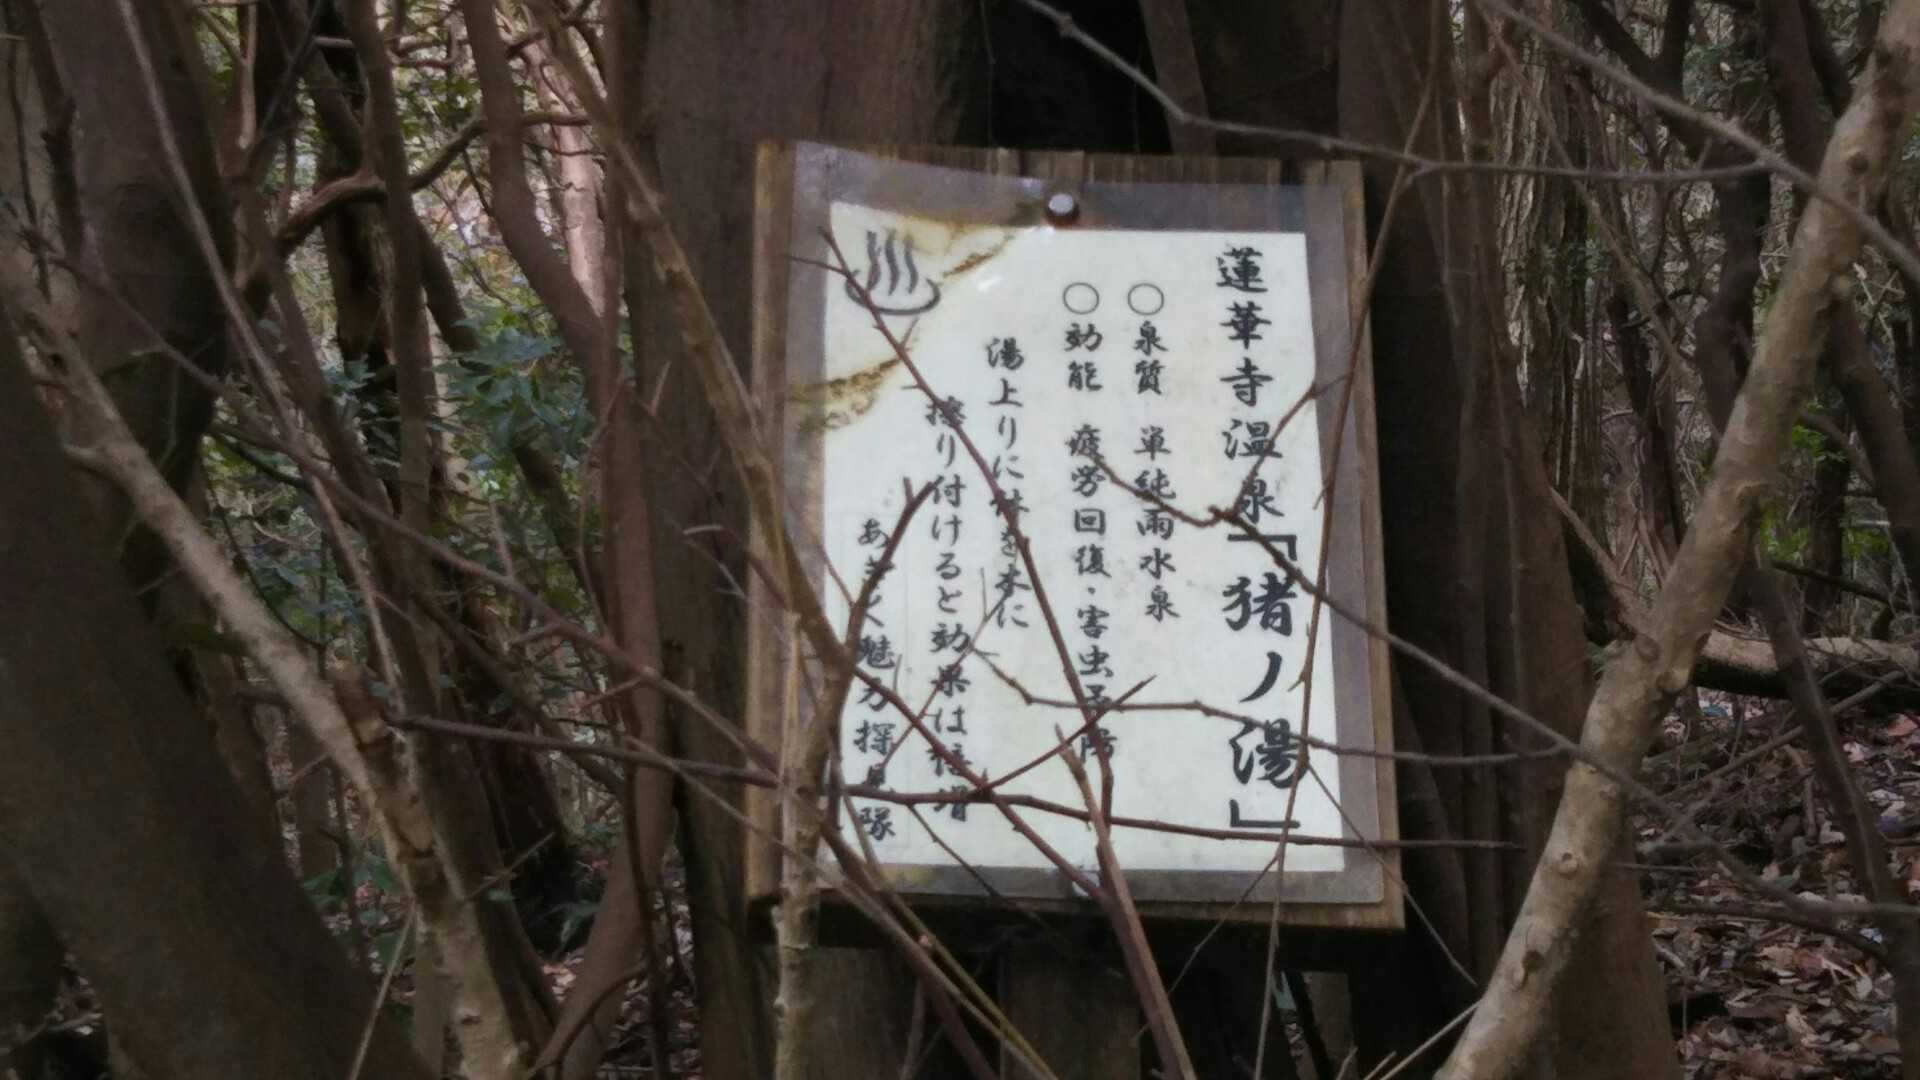 蓮華寺温泉「猪ノ湯」
○泉質 単純雨水泉
○効能 疲労回復・害虫予防
湯上りに体を木に
擦り付けると効果は倍増
あきく魅力探見隊